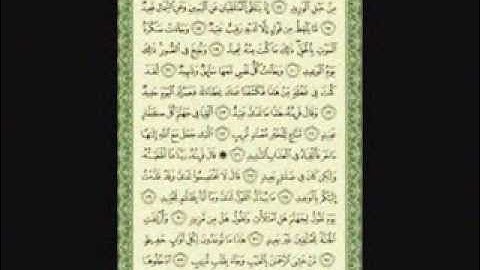 مِنْ حَبْلِ الْوَرِيدِ ﴿١٦﴾ إِذْ يَتَلَقَّى الْمُتَلَقِّيَانِ عَنِ الْيَمِينِ وَعَنِ الشِّمَالِ قَعِيدٌ
﴿١٧﴾ مَا يَلْفِظُ مِنْ قَوْلٍ إِلَّا لَدَيْهِ رَقِيبٌ عَتِيدٌ ﴿١٨﴾ وَجَاءَتْ سَكْرَةُ
الْمَوْتِ بِالْحَقِّ ذَلِكَ مَا كُنْتَ مِنْهُ تَحِيدُ ﴿١٩﴾ وَنُفِخَ فِي الصُّورِ ذَلِكَ
يَوْمُ الْوَعِيدِ ﴿٢٠﴾ وَجَاءَتْ كُلُّ نَفْسٍ مَعَهَا سَائِقٌ وَشَهِيدٌ ﴿٢١﴾ لَقَدْ
كُنْتَ فِي غَفْلَةٍ مِنْ هَذَا فَكَشَفْنَا عَنْكَ غِطَاءَكَ فَبَصَرُكَ الْيَوْمَ حَدِيدٌ
﴿٢٢﴾ وَقَالَ قَرِينُهُ هَذَا مَا لَدَيَّ عَتِيدٌ ﴿٢٣﴾ أَلْقِيَا فِي جَهَنَّمَ كُلَّ كَفَّارٍ
عَنِيدٍ ﴿٢٤﴾ مَنَّاعٍ لِلْخَيْرِ مُعْتَدٍ مُرِيبٍ ﴿٢٥﴾ الَّذِي جَعَلَ مَعَ اللَّهِ إِلَهًا
آخَرَ فَأَلْقِيَاهُ فِي الْعَذَابِ الشَّدِيدِ ﴿٢٦﴾ قَالَ قَرِينُهُ رَبَّنَا مَا أَطْغَيْتُهُ
وَلَكِنْ كَانَ فِي ضَلَالٍ بَعِيدٍ ﴿٢٧﴾ قَالَ لَا تَخْتَصِمُوا لَدَيَّ وَقَدْ قَدَّمْتُ
إِلَيْكُمْ بِالْوَعِيدِ ﴿٢٨﴾ مَا يُبَدَّلُ الْقَوْلُ لَدَيَّ وَمَا أَنَا بِظَلَّامٍ لِلْعَبِيدِ ﴿٢٩﴾
يَوْمَ نَقُولُ لِجَهَنَّمَ هَلِ امْتَلَأْتِ وَتَقُولُ هَلْ مِنْ مَزِيدٍ ﴿٣٠﴾ وَأُزْلِفَتِ
الْجَنَّةُ لِلْمُتَّقِينَ غَيْرَ بَعِيدٍ ﴿٣١﴾ هَذَا مَا تُوعَدُونَ لِكُلِّ أَوَّابٍ حَفِيظٍ
﴿٣٢﴾ مَنْ خَشِيَ الرَّحْمَنَ بِالْغَيْبِ وَجَاءَ بِقَلْبٍ مُنِيبٍ ﴿٣٣﴾ ادْخُلُوهَا